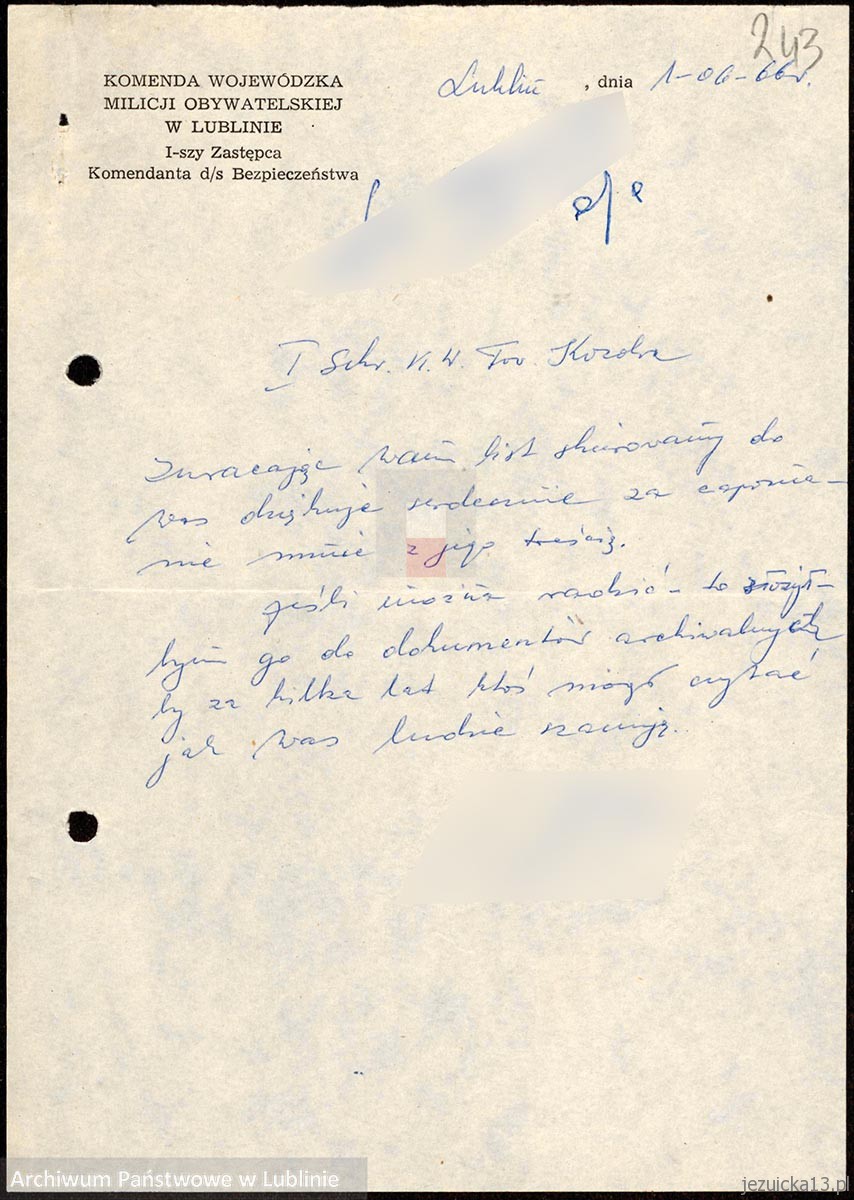 243
KOMENDA WOJEWÓDZKA
MILICJI OBYWATELSKIEJ
W LUBLINIE
I-szy Zastępca
Komendanta d/s Bezpieczeństwa
Lublin, dnia 1-06-66r.
a/a
I Sekr. K.W. Tow. Kozdra
Zwracając wam list skierowany do
was dziękuję serdecznie za zapozna-
nie mnie z jego treścią.
Jeśli można radzić - to złożył-
bym go do dokumentów archiwalnych
by za kilka lat ktoś mógł czytać
jak was ludzie szanują.
Archiwum Państwowe w Lublinie
jezuicka13.pl